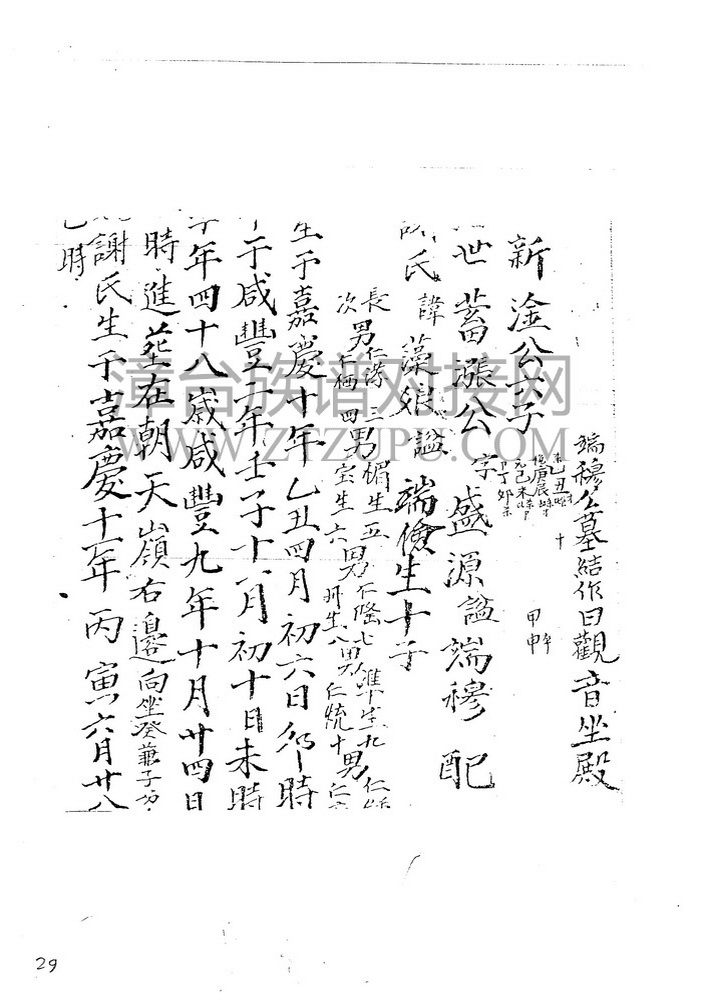 端穆公墓結作曰觀音坐殿
甲申
新淦公六子
世蓄漲公字盛源諡端穆配
氏諱藻娘諡端儉生十子
長男仁 三男楣生五男仁隆七 準生九仁
次男仁 四宝生六男 生八男仁統十男仁
生于嘉慶十年乙丑四月初六日卯時
于咸豐二年壬子十一月初十日未時
年四十八歲咸豐九年十月廿四日
時進葬在朝天嶺右邊向坐癸兼子
謝氏生于嘉慶十一年丙寅六月廿八
時
漳台族谱对接网
WWW.ZTZUPU.COM
29